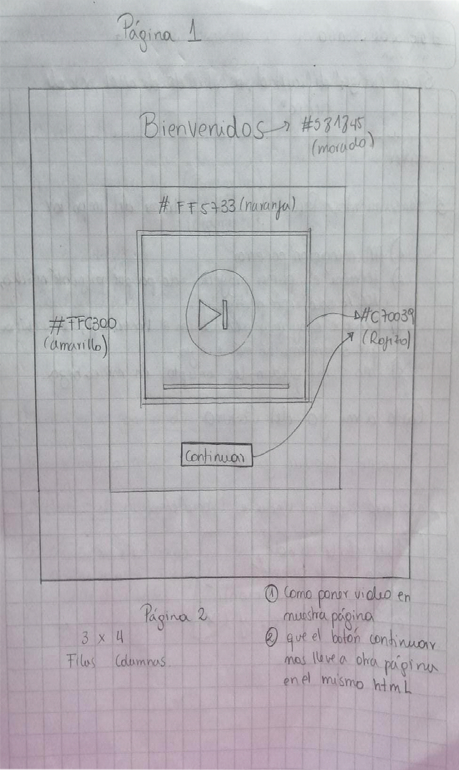 Página 1
Bienvenidos → #581845
(morado)
#FF5733 (naranja)
#FFC300
(amarillo)
#C70039
(Rojizo)
Continuar
Página 2
3 x 4
Filas Columnas
① Como poner video en
nuestra página
② que el botón continuar
nos lleve a otra página
en el mismo html